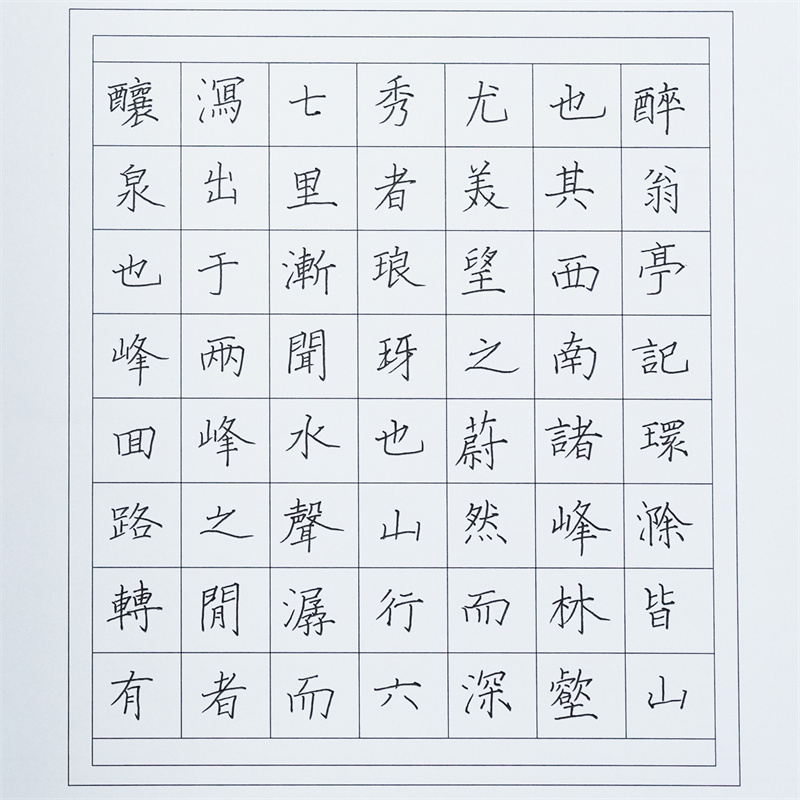 醉翁亭記環滁皆山
也其西南諸峰林壑
尤美望之蔚然而深
秀者琅玡也山行六
七里漸聞水聲潺而
瀉出于兩峰之間者
釀泉也峰回路轉有